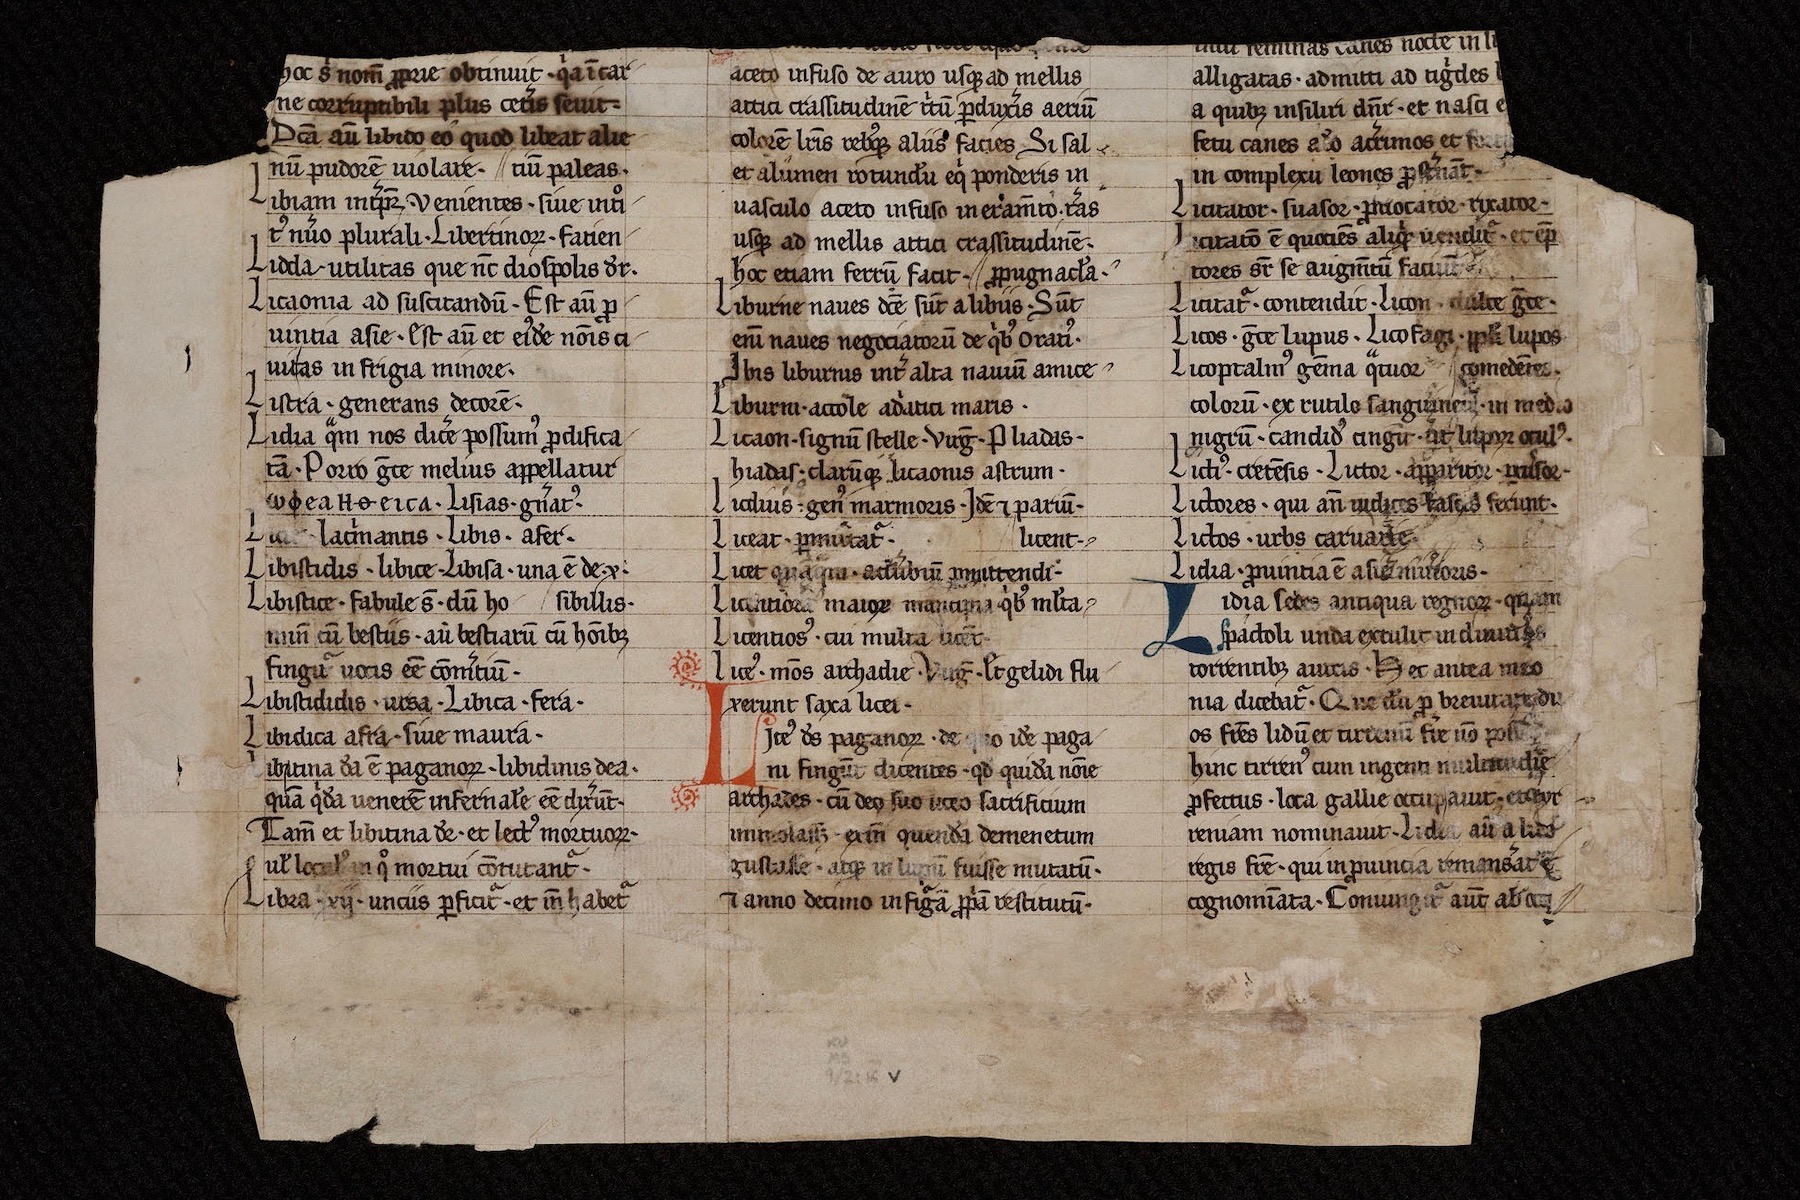 hoc s̄ nom̄ ꝓprie obtinuit · q̇a ī car
ne corruptibili plus cet̉is seuit ·
Dc̄a au̅ libido eo quod libeat alie
nu̅ pudore̅ uiolare · // tiu̅ paleas ·
Libiam int̉p̄ꝝ venientes · siue int̊i
t᷒ nu̅o plurali · Libertinoꝝ · facien
Lidda · utilitas que nc̄ diospolis dr̄ ·
Licaonia ad suscitandu̅ · Est au̅ ꝓ
uintia asie · Est au̅ et ei᷒de no̅is ci
uitas in frigia minore ·
Listra · generans decore̅ ·
Lidia qͣm nos dice̅ possum᷒ ꝓdifica
ta̅ · Porro gc̄e melius appellatur
ωφεαΗΘειcα · Lisias · gn̅at᷒ ·
lac̉mantis · Libis · afer ·
Libistidis · libice · Libisa · una ē de · x ·
Libistice · fabule s̄ · du̅ ho // sibillis ·
mini cu̅ bestiis · au̅ bestiaru̅ cu̅ ho̅ibꝫ
fingu̅t᷑ uocis ee̅ co̅m̉tiu̅ ·
Libistididis · ursa · Libica · fera ·
Libidica afra · siue maura ·
Libitina d̄a ē paganoꝝ · libidinis dea ·
qua̅ q̇da̅ uenere̅ infernale̅ ee̅ dix̉ut̅ ·
Tam̄ et libitina d̄r · et lect᷒ mortuoꝝ ·
ul̄ in q̊ mortui co̅dutant᷑ ·
Libra · xij · unciis ꝑficit᷑ · et in̄ habet᷑
aceto infuso de auro usqꝫ ad mellis
attici crassitudine̅ t̉tu̅ ꝓdux̉is aeriu̅
colore̅ lr̄is rebꝫqꝫ aliis facies Si sal
et alumen rotundu̅ eq̇ ponderis in
uasculo aceto infuso in eram̄to · t̉as
usqꝫ ad mellis attici crassitudine̅ ·
hoc etiam ferru̅ facit · // ꝓpugnac̄la ·
Liburne naues dc̄e su̅t a libiis · Su̅t
eni̅ naues negociatoru̅ de q̇b᷒ Orati᷒ ·
Ibis liburnis int̉ alta nauiu̅ amice
Liburni · accole ad̉iatici maris ·
Licaon · signu̅ stelle · Virḡ · Pliadas ·
hiadas · claru̅qꝫ licaonis astrum ·
Licdius · gen᷒ marmoris · Jde̅ ⁊ pariu̅ ·
Liceat · ꝑmittat᷑ · licent ·
Licet · aduerbiu̅ ꝑmittendi ·
maioꝝ · q̇b᷒ ml̄ta
Licentios᷒ · cui multa licet ·
Lice᷒ · mo̅s archadie · Virḡ · Et gelidi flu
xerunt saxa licei ·
Lice᷒ d̄s paganoꝝ · de quo ide̅ paga
ni fingu̅t dicentes · qd̄ quida̅ no̅ie
archades · cu̅ deo suo liceo sacrificium
quenda̅ demenetum
gustasse · atqꝫ in lupu̅ fuisse mutatu̅ ·
⁊ anno decimo in fig̉a̅ ꝓpia̅ restitutu̅ ·
feminas canes nocte in
alligatas · admitti ad tig̉des
a quibꝫ insiliri dn̄t · et nasci e
fetu canes a̅o acrimos et
in complexu leones ꝓst̉nāt ·
Licitator · suasor · ꝓuocator · rixator ·
Licitato̅ ē quocie̅s aliqͥ uendit᷑ · et e̅p
tores sr̄ se augm̄tu̅ faciu̅t
Licitat᷑ · contendit · Licon · dulce gc̄e ·
Licos · gc̄e lupus · Licofagi · ppl̄i lupos
Licoptalm᷒ ge̅ma qͣtuor // comede̅tes ·
coloru̅ · ex rutilo sanguineu̅ · in medio
nigru̅ · candid᷒ cingit · ut lupoꝝ ocul᷒ ·
Licti᷒ · crete̅sis · Lictor · apparitor ·
Lictores · qui an̅ iudices fasces ferunt ·
Lictos · urbs
Lidia · ꝓuintia ē asie minoris ·
Lidia sedes antiqua regnoꝝ · quam
pactoli unda extulit in diuitiis
torrentibꝫ auris · Hec antea meo
nia dicebat᷑ · Que du̅ ꝓ breuitate du
os fr̄es lidu̅ et tirrenu̅ fr̄e no̅
hinc tirren᷒ cum ingenti multitudine̅
ꝓfectus · loca gallie occupauit · et tyr
reniam nominauit · Lidia au̅ a lido
regis fr̄e · qui in ꝓuincia remans̉at
cognomi̅ata · Coniungit᷑ aut̅ ab